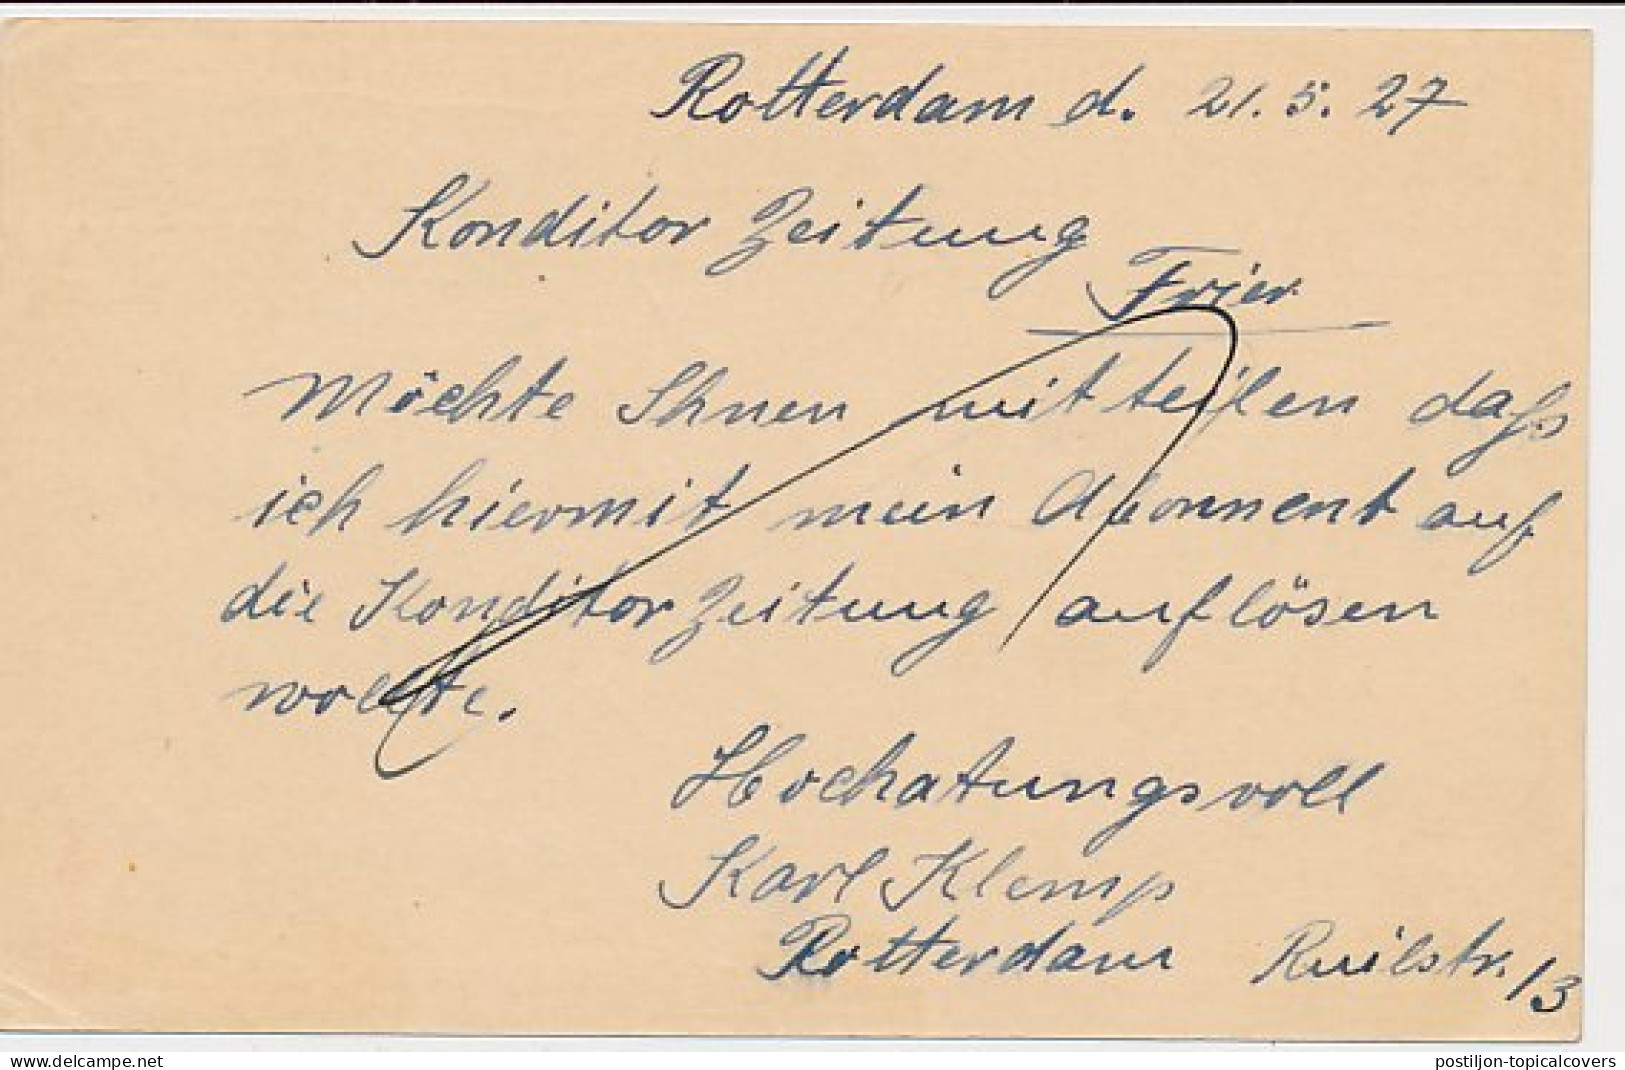 Rotterdam d. 21.5.27
Konditor Zeitung
Trier
Möchte Ihnen mitteilen daß
ich hiermit mein Abonnent auf
die Konditor Zeitung auflösen
wollte.
Hochatungsvoll
Karl Klemp
Rotterdam Ruilstr. 13
www.delcampe.net
postiljon-topicalcovers